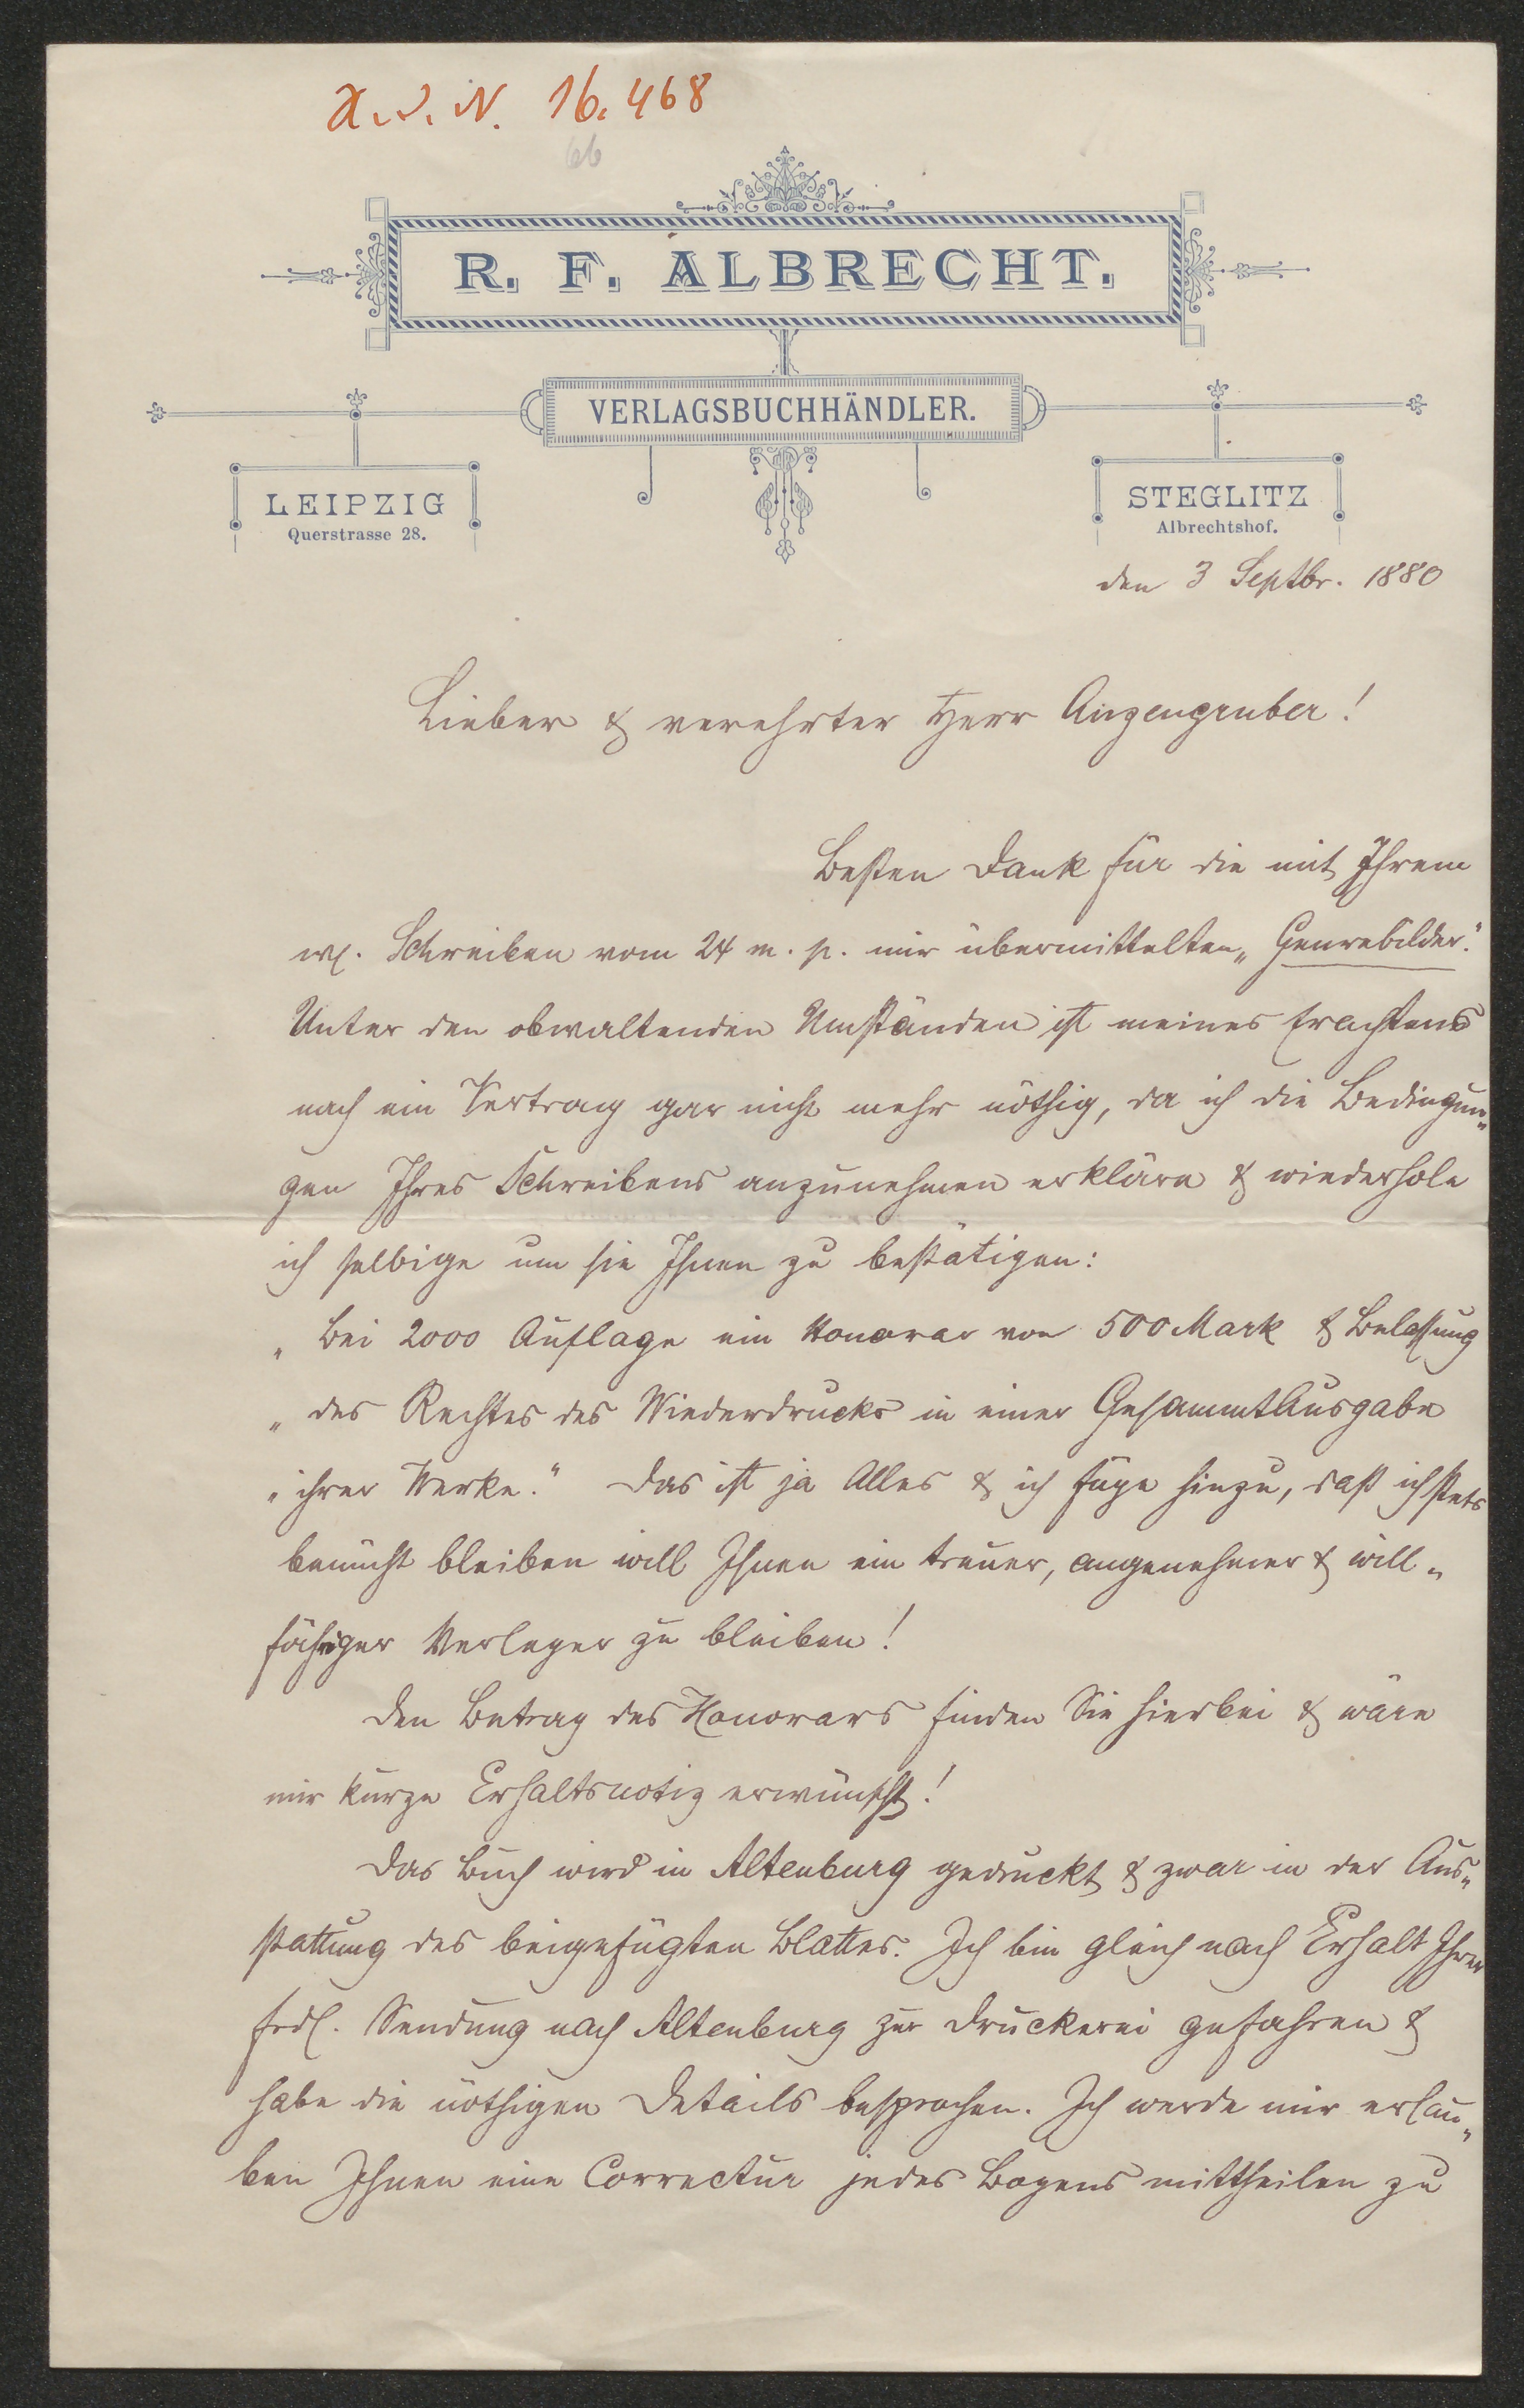 H.I.N. 16.468
66
R. F. ALBRECHT.
VERLAGSBUCHHÄNDLER.
LEIPZIG
Querstrasse 28.
STEGLITZ
Albrechtshof.
den 3 Septbr. 1880
Lieber & verehrter Herr Anzengruber!
Besten Dank für die mit Ihrem
w. Schreiben vom 24 m. p. mir übermittelten „Genrebilder."
Unter den obwaltenden Umständen ist meines Erachtens
nach ein Vertrag gar nicht mehr nöthig, da ich die Bedingun„
gen Ihres Schreibens anzunehmen erkläre & wiederhole
ich selbige um sie Ihnen zu bestätigen:
„Bei 2000 Auflage ein Honorar von 500 Mark & Belassung
„des Rechtes des Wiederdrucks in einer Gesammtausgabe
„ihrer Werke." Das ist ja Alles & ich füge hinzu, daß ich stets
bemüht bleiben will Ihnen ein treuer, angenehmer & will„
fähriger Verleger zu bleiben!
Den Betrag des Honorars finden Sie hierbei & wäre
mir kurze Erhaltsnotiz erwünscht!
Das Buch wird in Altenburg gedruckt & zwar in der Aus„
stattung des beigefügten Blattes. Ich bin gleich nach Erhalt Ihrer
frdl. Sendung nach Altenburg zur Druckerei gefahren &
habe die nöthigen Details besprochen. Ich werde mir erlau„
ben Ihnen eine Correctur jedes Bogens mittheilen zu